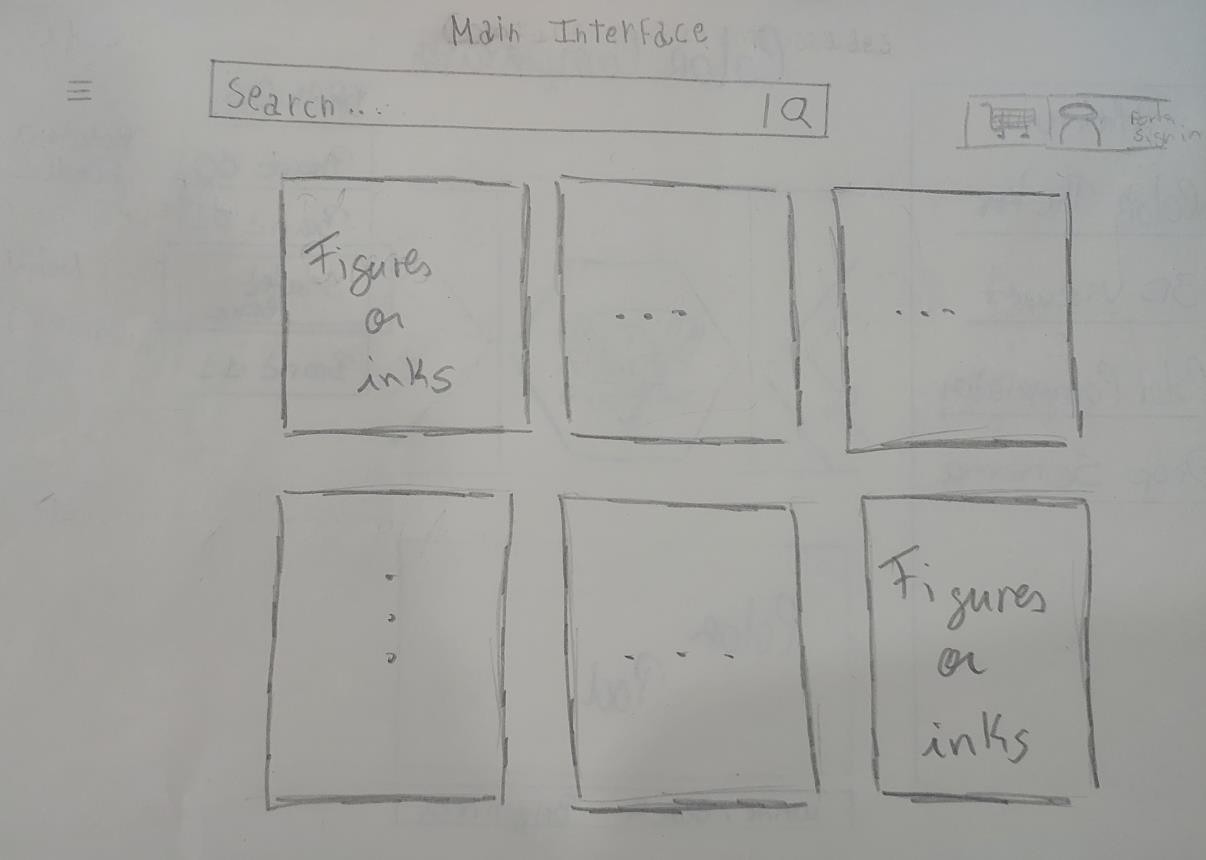 Main Interface
Search...
Sign in
Figures
or
inks
...
...
...
...
Figures
or
inks